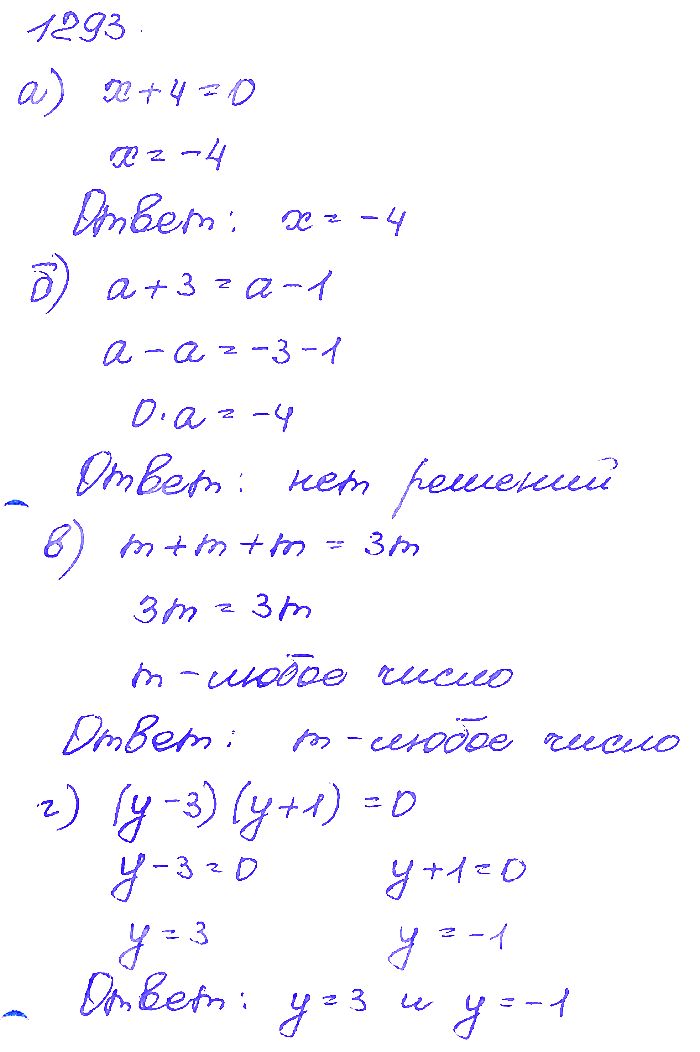 1293.
а) x + 4 = 0
x = -4
Ответ: x = -4
б) a + 3 = a - 1
a - a = -3 - 1
0 · a = -4
Ответ: нет решений
в) m + m + m = 3m
3m = 3m
m - любое число
Ответ: m - любое число
г) (y - 3) (y + 1) = 0
y - 3 = 0 y + 1 = 0
y = 3 y = -1
Ответ: y = 3 и y = -1